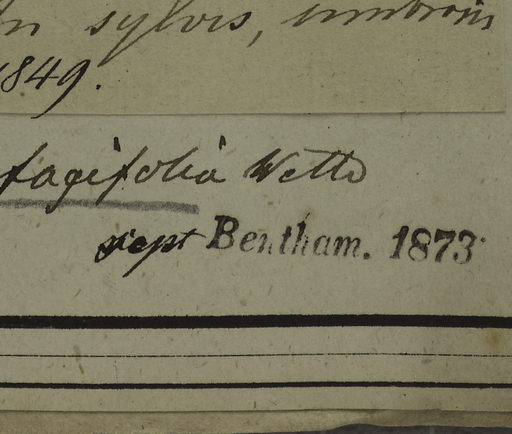 In sylvis, umbrosis
1849.
fagifolia Wettst
script Bentham. 1873